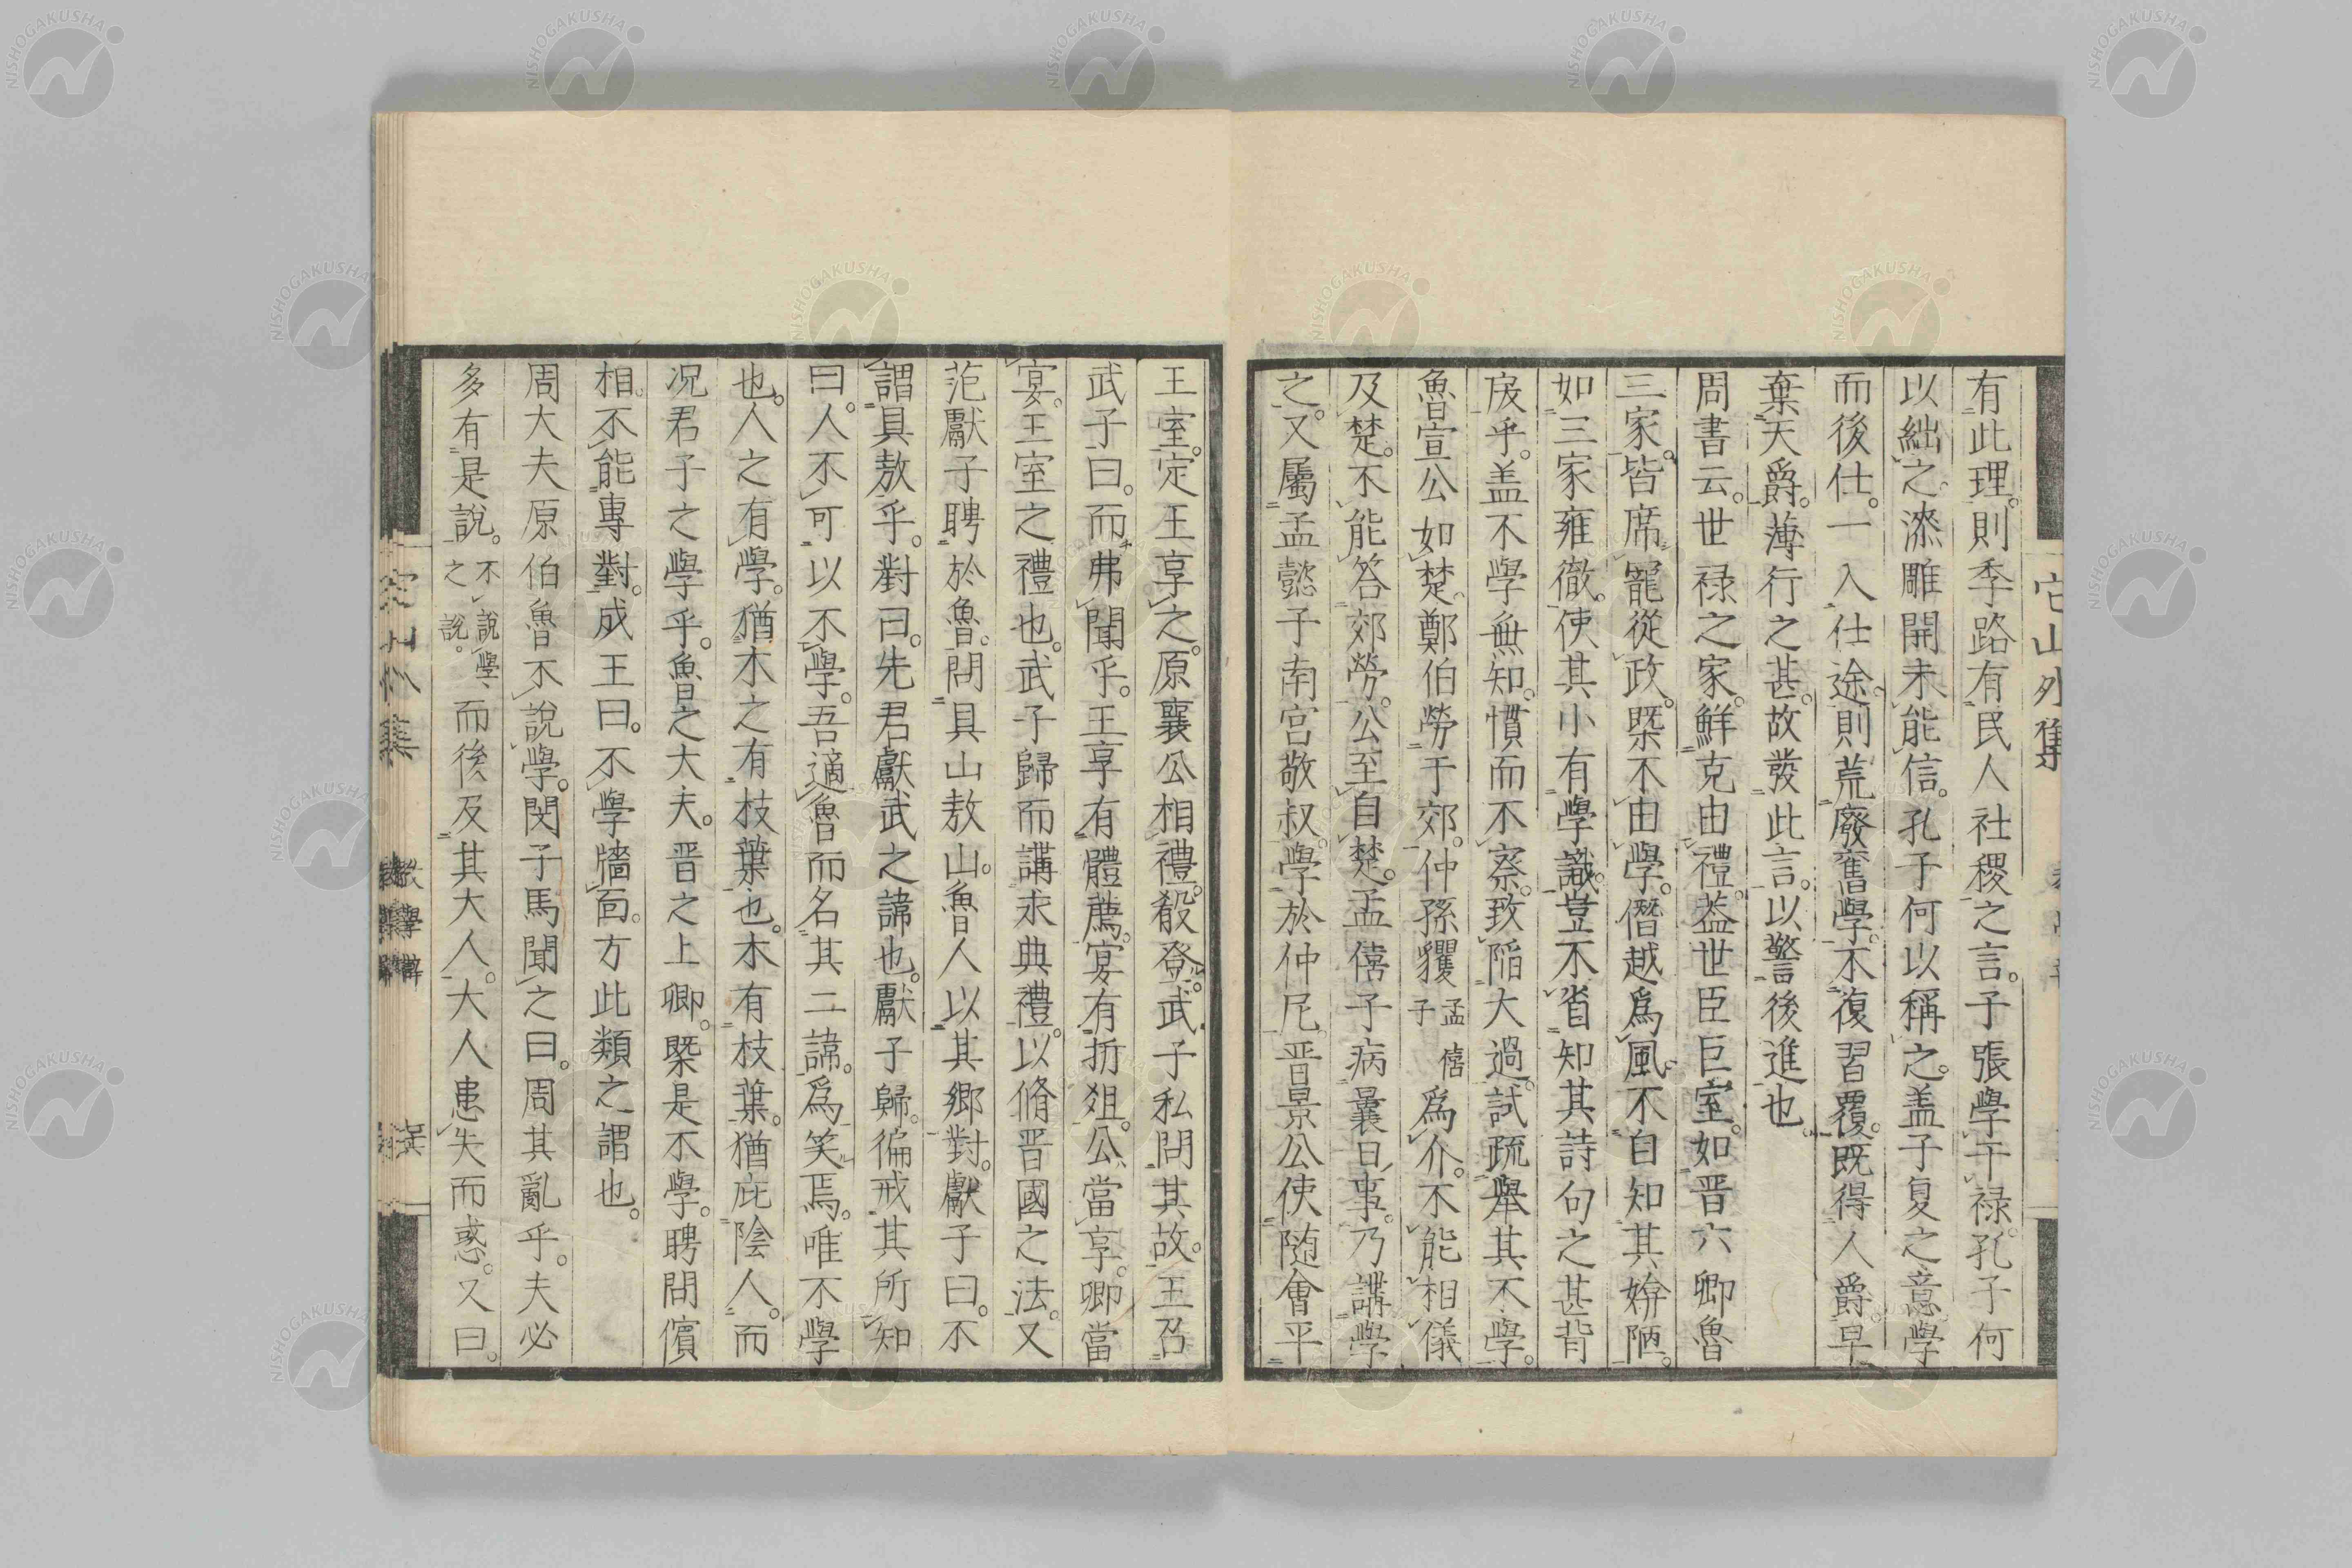 它山外集
有此理。則季路有民人社稷之言。子張學干祿。孔子何
以絀之。漆雕開未能信。孔子何以稱之。盖子夏之意學
而後仕。一入仕途。則荒廢舊學。不復習覆。既得人爵。早
棄天爵。薄行之甚。故發此言。以警後進也。
周書云。世祿之家。鮮克由禮。葢世臣巨室。如晋六卿魯
三家。皆席寵從政。槩不由學。僭越爲風。不自知其姱陋。
如三家雍徹。使其小有學識。豈不省知其詩句之甚背
戾乎。盖不學無知。慣而不察。致陷大過。試疏舉其不學。
魯宣公如楚。鄭伯勞于郊。仲孫貜孟僖子爲介。不能相儀
及楚。不能答郊勞。公至自楚。孟僖子病曩日事。乃講學
之。又屬孟懿子南宮敬叔。學於仲尼。晋景公使随會平
王室。定王享之。原襄公相禮。殽烝。武子私問其故。王召
武子曰。而弗聞乎。王享有體薦。宴有折俎。公當享。卿當
宴。王室之禮也。武子歸而講求典禮。以脩晋國之法。又
范獻子聘於魯。問具山敖山。魯人以其鄉對。獻子曰。不
謂具敖乎。對曰。先君獻武之諱也。獻子歸。徧戒其所知
曰。人不可以不學。吾適魯而名其二諱。爲笑焉。唯不學
也。人之有學。猶木之有枝葉也。木有枝葉。猶庇陰人。而
况君子之學乎。魯之大夫。晋之上卿。槩是不學。聘問儐
相。不能專對。成王曰。不學牆面。方此類之謂也。
周大夫原伯魯不說學。閔子馬聞之曰。周其亂乎。夫必
多有是說。不說學之說。而後及其大人。大人患失而惑。又曰。